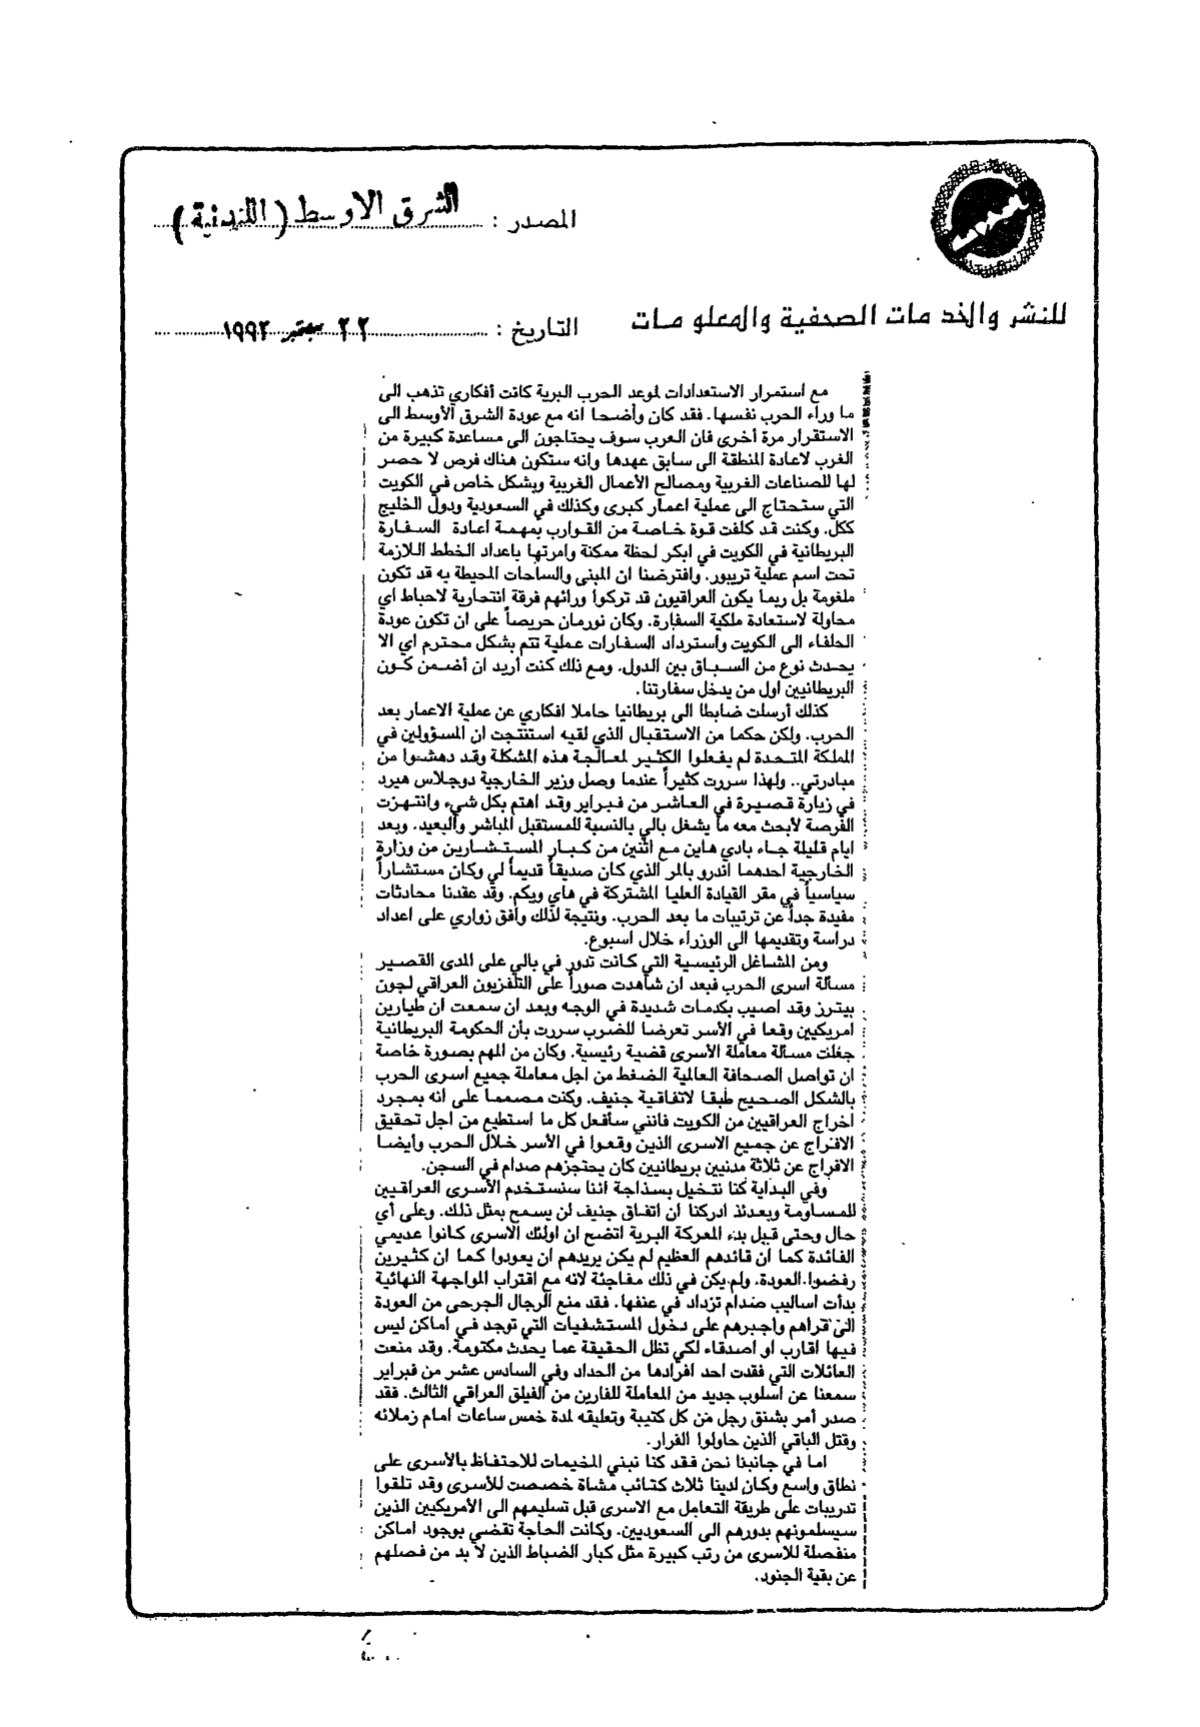 المصدر : الشرق الاوسط (اللندنية)
للنشر والخدمات الصحفية والمعلومات
التاريخ : ٢٢ سبتمبر ١٩٩٢
مع استمرار الاستعدادات لموعد الحرب البرية كانت أفكاري تذهب الى
ما وراء الحرب نفسها. فقد كان وأضحا انه مع عودة الشرق الأوسط الى
الاستقرار مرة أخرى فان العرب سوف يحتاجون الى مساعدة كبيرة من
الغرب لاعادة المنطقة الى سابق عهدها وانه ستكون هناك فرص لا حصر
لها للصناعات الغربية ومصالح الأعمال الغربية وبشكل خاص في الكويت
التي ستحتاج الى عملية اعمار كبرى وكذلك في السعودية ودول الخليج
ككل. وكنت قد كلفت قوة خاصة من القوارب بمهمة اعادة السفارة
البريطانية في الكويت في ابكر لحظة ممكنة وامرتها باعداد الخطط اللازمة
تحت اسم عملية تريبور. وافترضنا ان المبنى والساحات المحيطة به قد تكون
ملغومة بل ربما يكون العراقيون قد تركوا ورائهم فرقة انتحارية لاحباط اي
محاولة لاستعادة ملكية السفارة. وكان نورمان حريصاً على ان تكون عودة
الحلفاء الى الكويت واسترداد السفارات عملية تتم بشكل محترم اي الا
يحدث نوع من السباق بين الدول. ومع ذلك كنت أريد ان أضمن كون
البريطانيين اول من يدخل سفارتنا.
كذلك أرسلت ضابطا الى بريطانيا حاملا افكاري عن عملية الاعمار بعد
الحرب. ولكن حكما من الاستقبال الذي لقيه استنتجت ان المسؤولين في
المملكة المتحدة لم يفعلوا الكثير لمعالجة هذه المشكلة وقد دهشوا من
مبادرتي.. ولهذا سررت كثيراً عندما وصل وزير الخارجية دوجلاس هيرد
في زيارة قصيرة في العاشر من فبراير وقد اهتم بكل شيء وانتهزت
الفرصة لأبحث معه ما يشغل بالي بالنسبة للمستقبل المباشر والبعيد. وبعد
ايام قليلة جاء بادي هاين مع اثنين من كبار المستشارين من وزارة
الخارجية احدهما اندرو بالمر الذي كان صديقاً قديماً لي وكان مستشاراً
سياسياً في مقر القيادة العليا المشتركة في هاي ويكم. وقد عقدنا محادثات
مفيدة جداً عن ترتيبات ما بعد الحرب. ونتيجة لذلك وافق زواري على اعداد
دراسة وتقديمها الى الوزراء خلال اسبوع.
ومن المشاغل الرئيسية التي كانت تدور في بالي على المدى القصير
مسألة اسرى الحرب فبعد ان شاهدت صوراً على التلفزيون العراقي لجون
بيترز وقد اصيب بكدمات شديدة في الوجه وبعد ان سمعت ان طيارين
امريكيين وقعا في الأسر تعرضا للضرب سررت بأن الحكومة البريطانية
جعلت مسألة معاملة الأسرى قضية رئيسية. وكان من المهم بصورة خاصة
ان تواصل الصحافة العالمية الضغط من اجل معاملة جميع اسرى الحرب
بالشكل الصحيح طبقا لاتفاقية جنيف. وكنت مصمما على انه بمجرد
اخراج العراقيين من الكويت فانني سأفعل كل ما استطيع من اجل تحقيق
الافراج عن جميع الاسرى الذين وقعوا في الأسر خلال الحرب وأيضا
الافراج عن ثلاثة مدنيين بريطانيين كان يحتجزهم صدام في السجن.
وفي البداية كنا نتخيل بسذاجة اننا سنستخدم الأسرى العراقيين
للمساومة وبعدئذ ادركنا ان اتفاق جنيف لن يسمح بمثل ذلك. وعلى أي
حال وحتى قبل بدء المعركة البرية اتضح ان اولئك الاسرى كانوا عديمي
الفائدة كما ان قائدهم العظيم لم يكن يريدهم ان يعودوا كما ان كثيرين
رفضوا العودة. ولم يكن في ذلك مفاجئة لانه مع اقتراب المواجهة النهائية
بدأت اساليب صدام تزداد في عنفها. فقد منع الرجال الجرحى من العودة
الى قراهم واجبرهم على دخول المستشفيات التي توجد في اماكن ليس
فيها اقارب او اصدقاء لكي تظل الحقيقة عما يحدث مكتومة. وقد منعت
العائلات التي فقدت احد افرادها من الحداد وفي السادس عشر من فبراير
سمعنا عن اسلوب جديد من المعاملة للفارين من الفيلق العراقي الثالث. فقد
صدر أمر بشنق رجل من كل كتيبة وتعليقه لمدة خمس ساعات امام زملائه
وقتل الباقي الذين حاولوا الفرار.
اما في جانبنا نحن فقد كنا نبني المخيمات للاحتفاظ بالأسرى على
نطاق واسع وكان لدينا ثلاث كتائب مشاة خصصت للأسرى وقد تلقوا
تدريبات على طريقة التعامل مع الاسرى قبل تسليمهم الى الأمريكيين الذين
سيسلمونهم بدورهم الى السعوديين. وكانت الحاجة تقضي بوجود اماكن
منفصلة للأسرى من رتب كبيرة مثل كبار الضباط الذين لا بد من فصلهم
عن بقية الجنود.